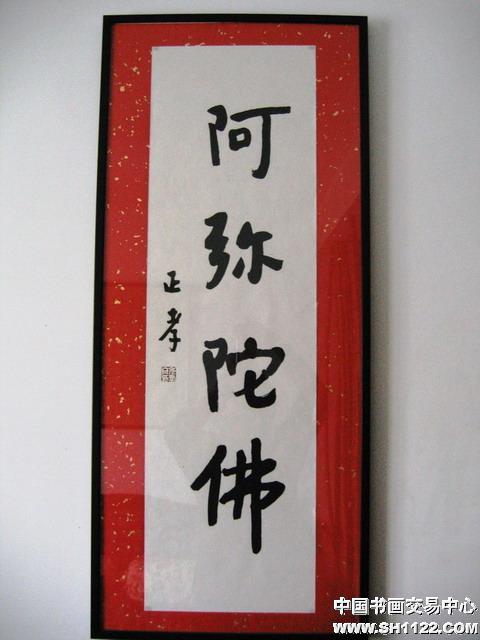 阿弥陀佛
正孝
中国书画交易中心
www.SH1122.COM